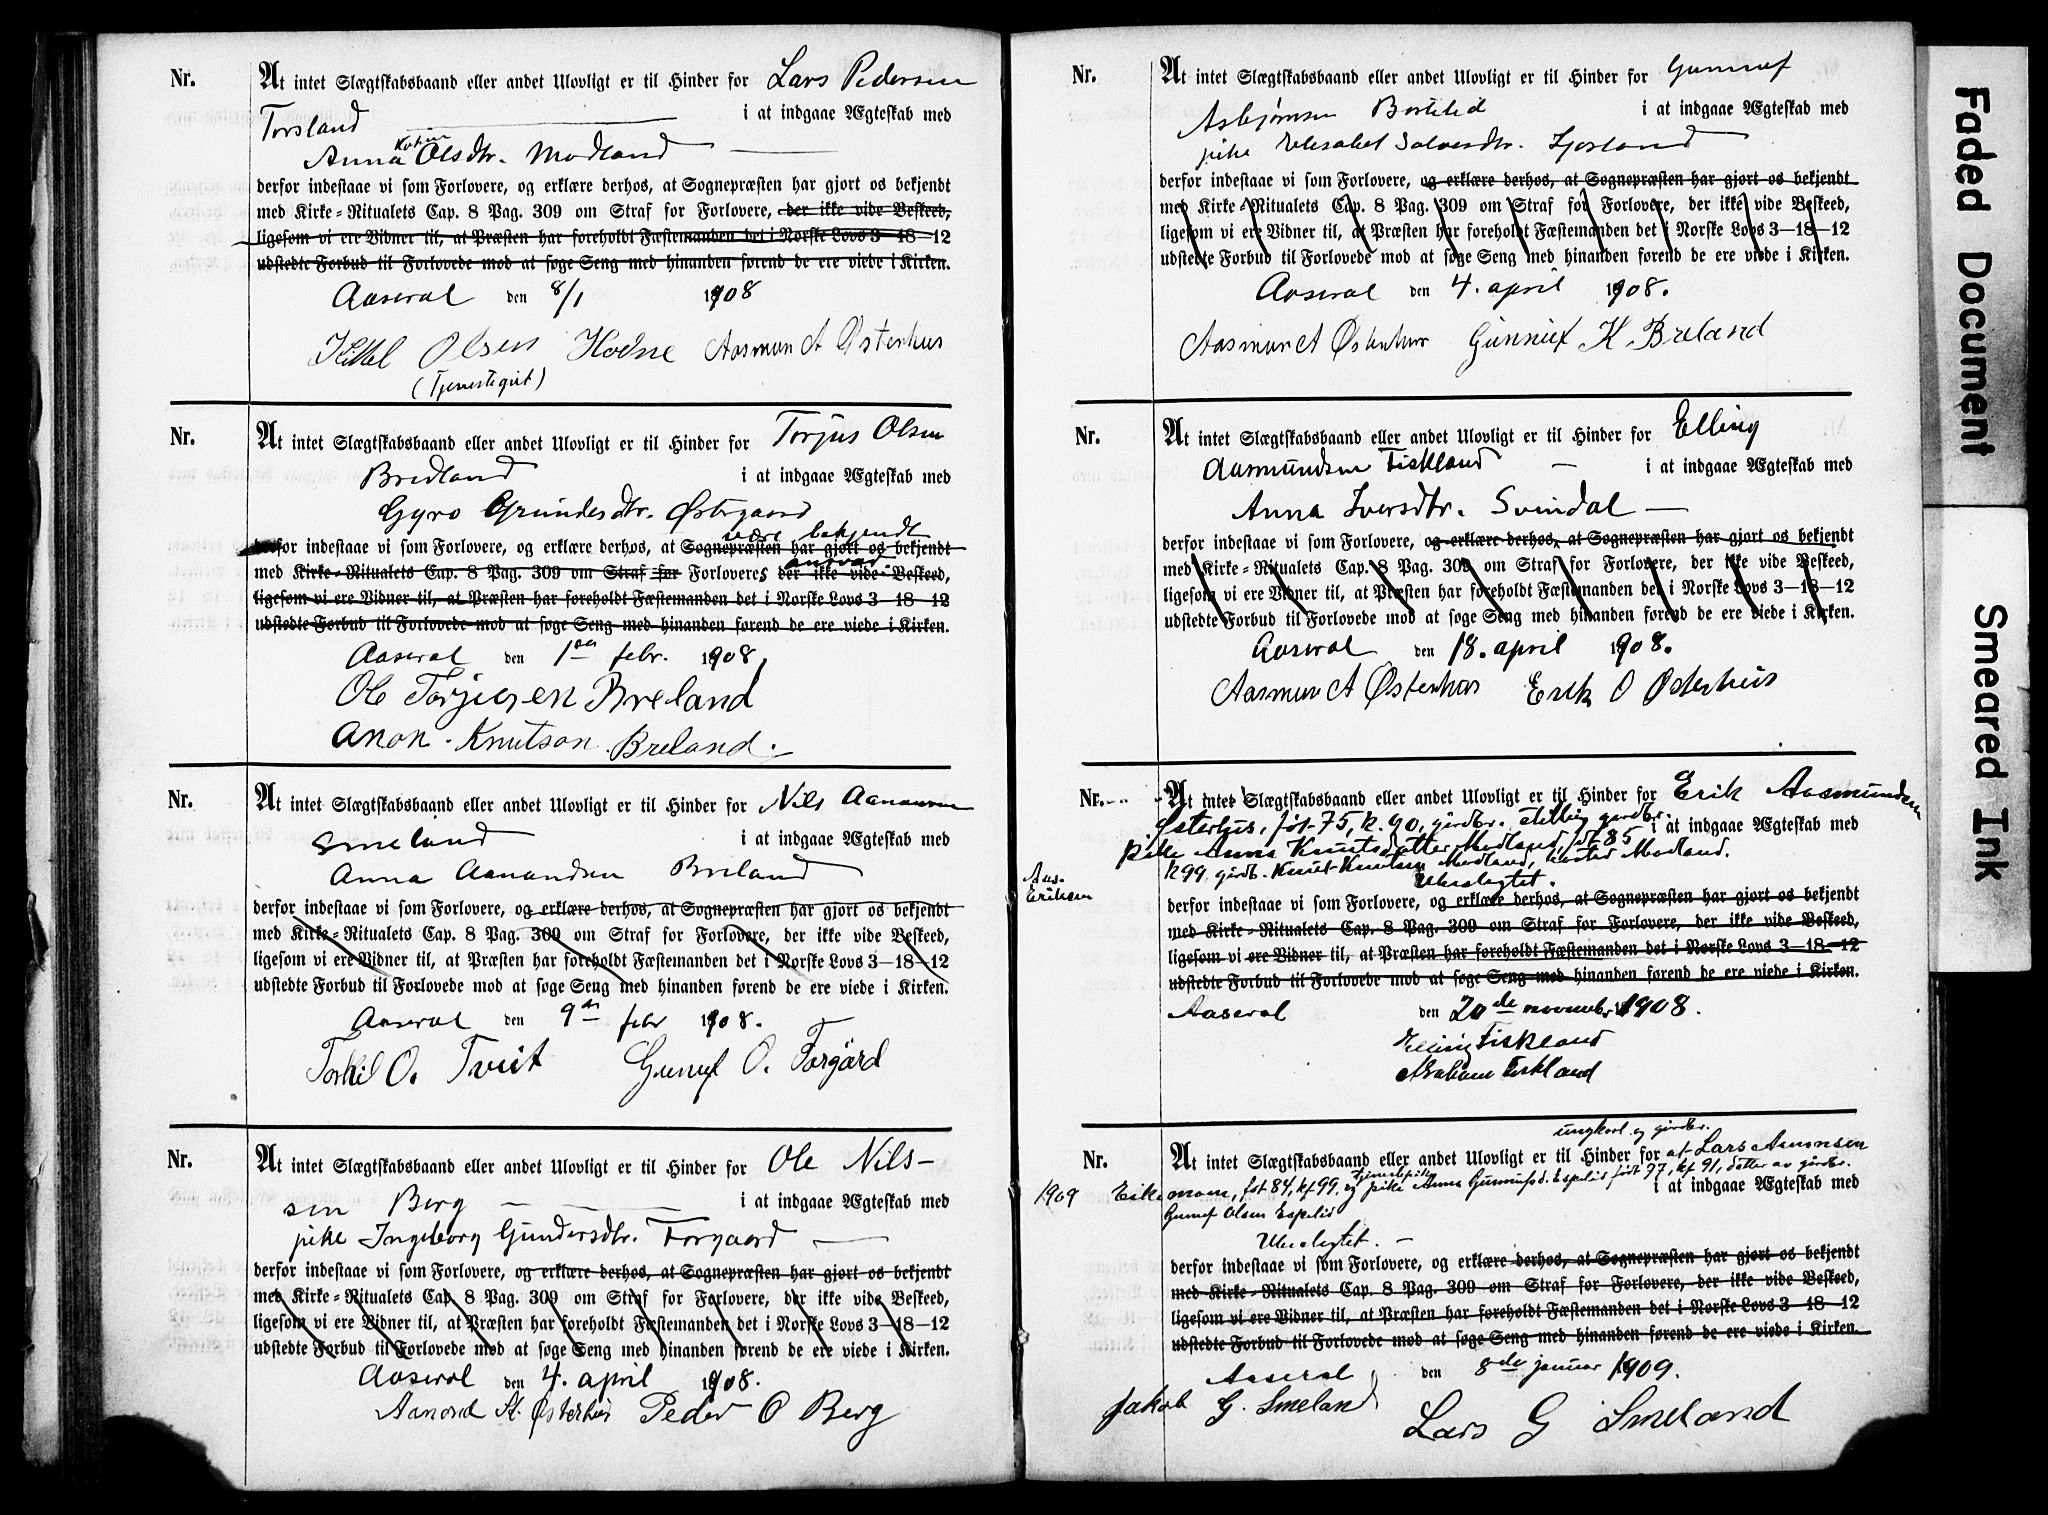 Nr. At intet Slægtskabsbaand eller andet Ulovligt er til Hinder for Lars Pedersen
Torsland i at indgaae Ægteskab med
Anna Olsdtr. Modland
derfor indestaae vi som Forlovere, og erklære derhos, at Sognepræsten har gjort os bekjendt
med Kirke-Ritualets Cap. 8 Pag. 309 om Straf for Forlovere, der ikke vide Beskeed,
ligesom vi ere Vidner til, at Præsten har foreholdt Fæstemanden det i Norske Lovs 3—18—12
udstedte Forbud til Forlovede mod at søge Seng med hinanden førend de ere viede i Kirken.
Aaseral den 8/1 1908
Olsen Hodne Aasmun A Østerhus
(Tjenestegut)
Nr. At intet Slægtskabsbaand eller andet Ulovligt er til Hinder for Torjus Olsen
Breland i at indgaae Ægteskab med
Gyro Grundesdtr. Østergaard
være bekjendt
derfor indestaae vi som Forlovere, og erklære derhos, at Sognepræsten har gjort os bekjendt
ansvar
med Kirke-Ritualets Cap. 8 Pag. 309 om Straf for Forloveres der ikke vide Beskeed,
ligesom vi ere Vidner til, at Præsten har foreholdt Fæstemanden det i Norske Lovs 3—18—12
udstedte Forbud til Forlovede mod at søge Seng med hinanden førend de ere viede i Kirken.
Aaseral den 1ste febr. 1908
Ole Torjusen Breland
Anon Knutson Breland
Nr. At intet Slægtskabsbaand eller andet Ulovligt er til Hinder for Nils Aanonsen
Smeland i at indgaae Ægteskab med
Anna Aanondsen Breland
derfor indestaae vi som Forlovere, og erklære derhos, at Sognepræsten har gjort os bekjendt
med Kirke-Ritualets Cap. 8 Pag. 309 om Straf for Forlovere, der ikke vide Beskeed,
ligesom vi ere Vidner til, at Præsten har foreholdt Fæstemanden det i Norske Lovs 3—18—12
udstedte Forbud til Forlovede mod at søge Seng med hinanden førend de ere viede i Kirken.
Aaseral den 9de febr 1908.
Torkil O. Tveit Gunuf O. Forgård
Nr. At intet Slægtskabsbaand eller andet Ulovligt er til Hinder for Ole Nils-
sen Berg i at indgaae Ægteskab med
pike Ingeborg Gundersdtr. Forgaard
derfor indestaae vi som Forlovere, og erklære derhos, at Sognepræsten har gjort os bekjendt
med Kirke-Ritualets Cap. 8 Pag. 309 om Straf for Forlovere, der ikke vide Beskeed,
ligesom vi ere Vidner til, at Præsten har foreholdt Fæstemanden det i Norske Lovs 3—18—12
udstedte Forbud til Forlovede mod at søge Seng med hinanden førend de ere viede i Kirken.
Aaseral den 4. april 1908.
Aanond Østerhus Peder O Berg
Nr. At intet Slægtskabsbaand eller andet Ulovligt er til Hinder for Gunnuf
Asbjørnsen i at indgaae Ægteskab med
pike Elisabet Salvesdtr.
derfor indestaae vi som Forlovere, og erklære derhos, at Sognepræsten har gjort os bekjendt
med Kirke-Ritualets Cap. 8 Pag. 309 om Straf for Forlovere, der ikke vide Beskeed,
ligesom vi ere Vidner til, at Præsten har foreholdt Fæstemanden det i Norske Lovs 3—18—12
udstedte Forbud til Forlovede mod at søge Seng med hinanden førend de ere viede i Kirken.
Aaseral den 4. april 1908.
Aasmun A Østerhus Gunnuf K. Breland
Nr. At intet Slægtskabsbaand eller andet Ulovligt er til Hinder for Elling
Aasmundsen Eiskland i at indgaae Ægteskab med
Anna Iversdtr. Svindal
derfor indestaae vi som Forlovere, og erklære derhos, at Sognepræsten har gjort os bekjendt
med Kirke-Ritualets Cap. 8 Pag. 309 om Straf for Forlovere, der ikke vide Beskeed,
ligesom vi ere Vidner til, at Præsten har foreholdt Fæstemanden det i Norske Lovs 3—18—12
udstedte Forbud til Forlovede mod at søge Seng med hinanden førend de ere viede i Kirken.
Aaseral den 18. april 1908.
Aasmun A Østerhus Erik O Østerhus
Nr. At intet Slægtskabsbaand eller andet Ulovligt er til Hinder for Erik Aasmundsen
Østerhus, født 75, k. 90, gårdbr. gårdbr. i at indgaae Ægteskab med
pike Anna Knutsdatter Modland, født 85
k 99 gårdb. Knut Knutsen Modland, Modland.
Aas. Eriksen
Ubeslegtet.
derfor indestaae vi som Forlovere, og erklære derhos, at Sognepræsten har gjort os bekjendt
med Kirke-Ritualets Cap. 8 Pag. 309 om Straf for Forlovere, der ikke vide Beskeed,
ligesom vi ere Vidner til, at Præsten har foreholdt Fæstemanden det i Norske Lovs 3—18—12
udstedte Forbud til Forlovede mod at søge Seng med hinanden førend de ere viede i Kirken.
Aaseral den 20de november 1908.
Elling Eiskland
Abraham Eiskland
ungkarl og gårdbr.
Nr. At intet Slægtskabsbaand eller andet Ulovligt er til Hinder for at Lars Aanonsen
tjenestepike
1909 Eikemom, født 84, kf 99, og pike Anna Gunnufsd. Espelid født 77, kf 91, datter av gårdbr. i at indgaae Ægteskab med
Gunuf Olsen Espelid
Ubeslegtet.
derfor indestaae vi som Forlovere, og erklære derhos, at Sognepræsten har gjort os bekjendt
med Kirke-Ritualets Cap. 8 Pag. 309 om Straf for Forlovere, der ikke vide Beskeed,
ligesom vi ere Vidner til, at Præsten har foreholdt Fæstemanden det i Norske Lovs 3—18—12
udstedte Forbud til Forlovede mod at søge Seng med hinanden førend de ere viede i Kirken.
Aaseral den 8de januar 1909.
Jakob G. Smeland Lars G Smeland
Faded Document
Smeared Ink